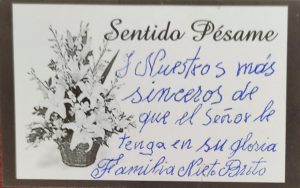 Sentido Pésame
Nuestros más
sinceros de
que el Señor le
tenga en su gloria
Familia Nieto Brito